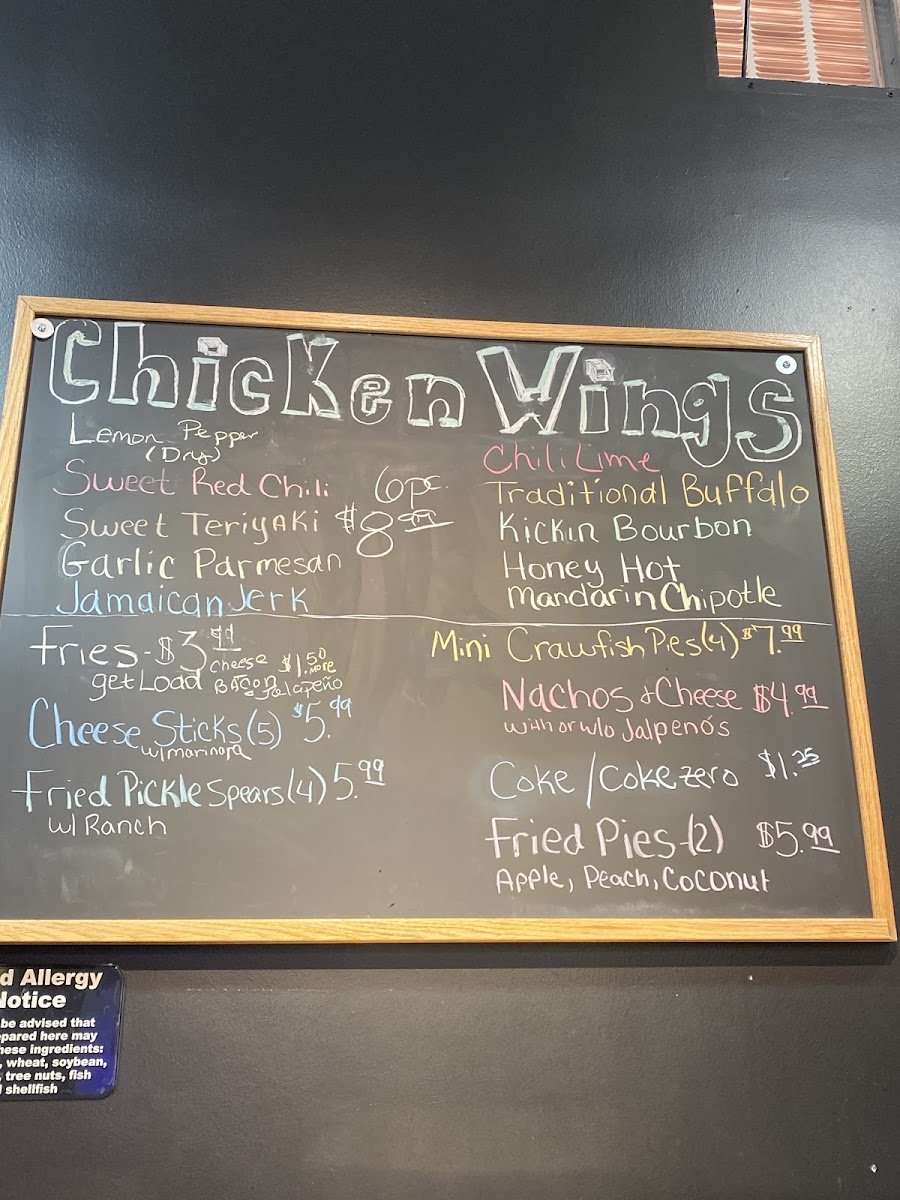 Chicken Wings
Lemon Pepper
(Dry)
Sweet Red Chili
Sweet Teriyaki
Garlic Parmesan
Jamaican Jerk
6pc.
$8.99
Chili Lime
Traditional Buffalo
Kickin Bourbon
Honey Hot
Mandarin Chipotle
Fries - $3.99
get Load cheese $1.50 more
Bacon
& Jalapeño
Cheese Sticks (5) $5.99
w/marinara
Fried Pickle Spears (4) 5.99
w/ Ranch
Mini Crawfish Pies (4) $7.99
Nachos & Cheese $4.99
with or w/o Jalpenó's
Coke / Coke zero $1.25
Fried Pies - (2) $5.99
Apple, Peach, Coconut
d Allergy
Notice
be advised that
pared here may
hese ingredients:
, wheat, soybean,
, tree nuts, fish
shellfish